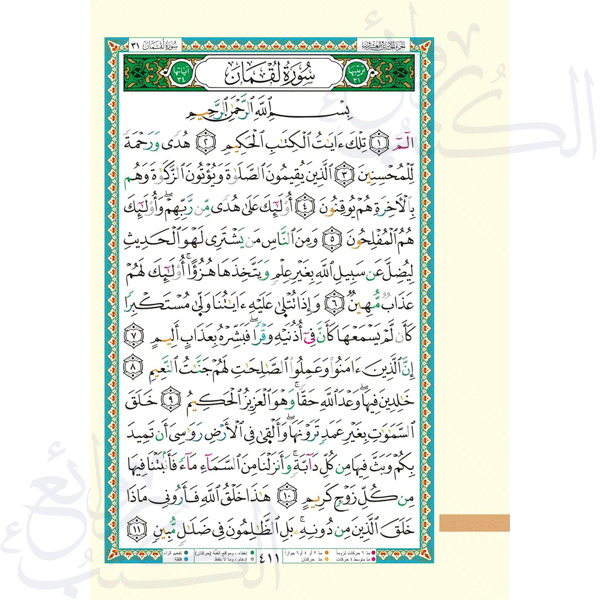 سُورَةُ لُقْمَانَ ٣١
ترتيبها ٣١
سُورَةُ لُقْمَانَ
آياتها ٣٤
بِسْمِ ٱللَّهِ ٱلرَّحْمَٰنِ ٱلرَّحِيمِ
الٓمٓ ١ تِلْكَ ءَايَٰتُ ٱلْكِتَٰبِ ٱلْحَكِيمِ ٢ هُدًى وَرَحْمَةً
لِّلْمُحْسِنِينَ ٣ ٱلَّذِينَ يُقِيمُونَ ٱلصَّلَوٰةَ وَيُؤْتُونَ ٱلزَّكَوٰةَ وَهُم
بِٱلْأَخِرَةِ هُمْ يُوقِنُونَ ٤ أُو۟لَٰٓئِكَ عَلَىٰ هُدًى مِّن رَّبِّهِمْ ۖ وَأُو۟لَٰٓئِكَ
هُمُ ٱلْمُفْلِحُونَ ٥ وَمِنَ ٱلنَّاسِ مَن يَشْتَرِى لَهْوَ ٱلْحَدِيثِ
لِيُضِلَّ عَن سَبِيلِ ٱللَّهِ بِغَيْرِ عِلْمٍ وَيَتَّخِذَهَا هُزُوًا ۚ أُو۟لَٰٓئِكَ لَهُمْ
عَذَابٌ مُّهِينٌ ٦ وَإِذَا تُتْلَىٰ عَلَيْهِ ءَايَٰتُنَا وَلَّىٰ مُسْتَكْبِرًا
كَأَن لَّمْ يَسْمَعْهَا كَأَنَّ فِىٓ أُذُنَيْهِ وَقْرًا ۖ فَبَشِّرْهُ بِعَذَابٍ أَلِيمٍ ٧
إِنَّ ٱلَّذِينَ ءَامَنُوا۟ وَعَمِلُوا۟ ٱلصَّٰلِحَٰتِ لَهُمْ جَنَّٰتُ ٱلنَّعِيمِ ٨
خَٰلِدِينَ فِيهَا ۖ وَعْدَ ٱللَّهِ حَقًّا ۚ وَهُوَ ٱلْعَزِيزُ ٱلْحَكِيمُ ٩ خَلَقَ
ٱلسَّمَٰوَٰتِ بِغَيْرِ عَمَدٍ تَرَوْنَهَا ۖ وَأَلْقَىٰ فِى ٱلْأَرْضِ رَوَٰسِىَ أَن تَمِيدَ
بِكُمْ وَبَثَّ فِيهَا مِن كُلِّ دَآبَّةٍ ۚ وَأَنزَلْنَا مِنَ ٱلسَّمَآءِ مَآءً فَأَنۢبَتْنَا فِيهَا
مِن كُلِّ زَوْجٍ كَرِيمٍ ١٠ هَٰذَا خَلْقُ ٱللَّهِ فَأَرُونِى مَاذَا
خَلَقَ ٱلَّذِينَ مِن دُونِهِۦ ۚ بَلِ ٱلظَّٰلِمُونَ فِى ضَلَٰلٍ مُّبِينٍ ١١
٤١١
روائع الكتب
روائع الكتب